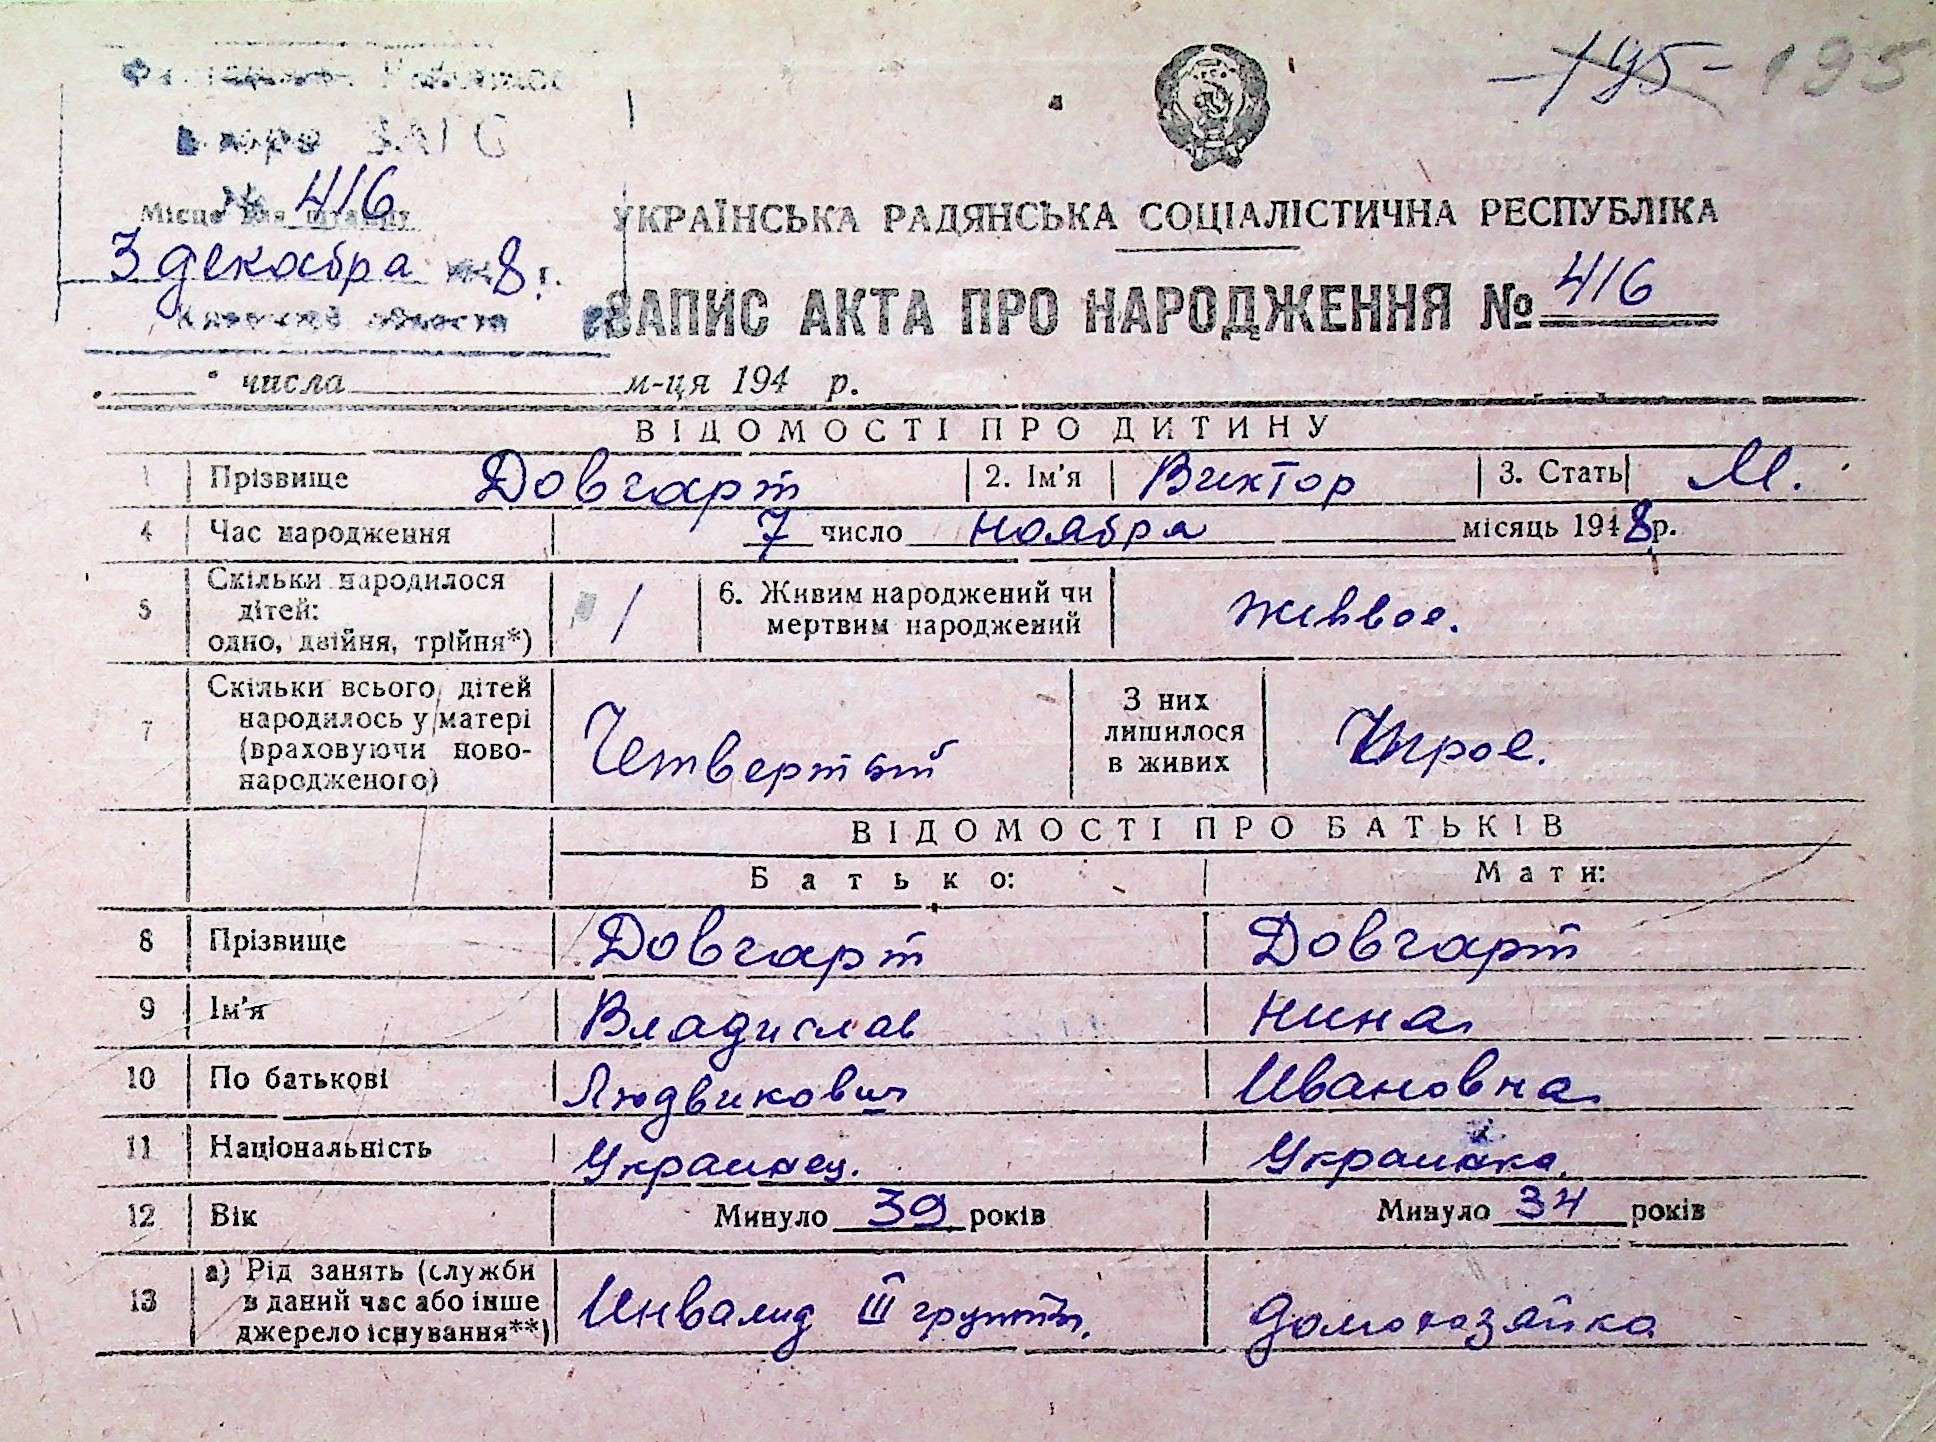 195 195
бюро ЗАГС
№ 416
Місце для штампу
3 декабря 8 г.
области
УКРАЇНСЬКА РАДЯНСЬКА СОЦІАЛІСТИЧНА РЕСПУБЛІКА
ЗАПИС АКТА ПРО НАРОДЖЕННЯ № 416
числа м-ця 194 р.
ВІДОМОСТІ ПРО ДИТИНУ
1 Прізвище Довгарт 2. Ім'я Виктор 3. Стать М.
4 Час народження 7 число ноября місяць 1948 р.
5 Скільки народилося дітей: одно, двійня, трійня*) 1 6. Живим народжений чи мертвим народжений живвое.
7 Скільки всього дітей народилось у матері (враховуючи новонародженого) Четвертый З них лишилося в живих трое.
ВІДОМОСТІ ПРО БАТЬКІВ
Батько: Мати:
8 Прізвище Довгарт Довгарт
9 Ім'я Владислав Нина
10 По батькові Людвикович Ивановна
11 Національність Украинец. Украинка.
12 Вік Минуло 39 років Минуло 34 років
13 а) Рід занять (служби в даний час або інше джерело існування**) Инвалид III группы. домохозяйка